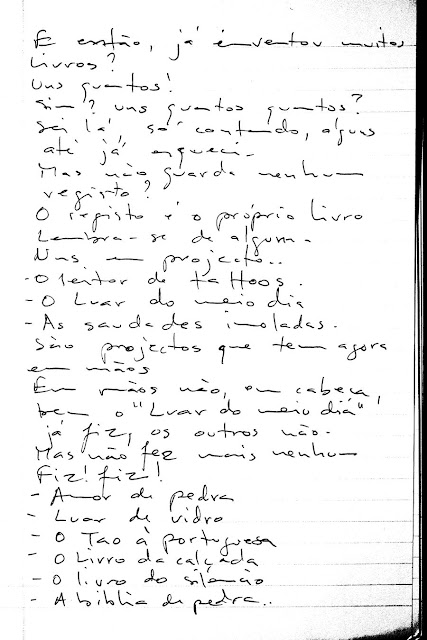 E então, já inventou muitos
livros?
Uns quantos!
Sim? uns quantos quantos?
Sei lá, só contando, alguns
até já esqueci.
Mas não guarda nenhum
registo?
O registo é o próprio livro
Lembra-se de algum.
Nuns em projecto..
- O leitor de tattoos.
- O Luar do meio dia
- As saudades imoladas.
São projectos que tem agora
em mãos
Em mãos não, em cabeça,
bem o "Luar do meio diá"
já fiz, os outros não.
Mas não fez mais nenhum
Fiz! fiz!
- Amor de pedra
- Luar de vidro
- O Tao à portuguesa
- O Livro da calçada
- O livro do silêncio
- A biblia de pedra..